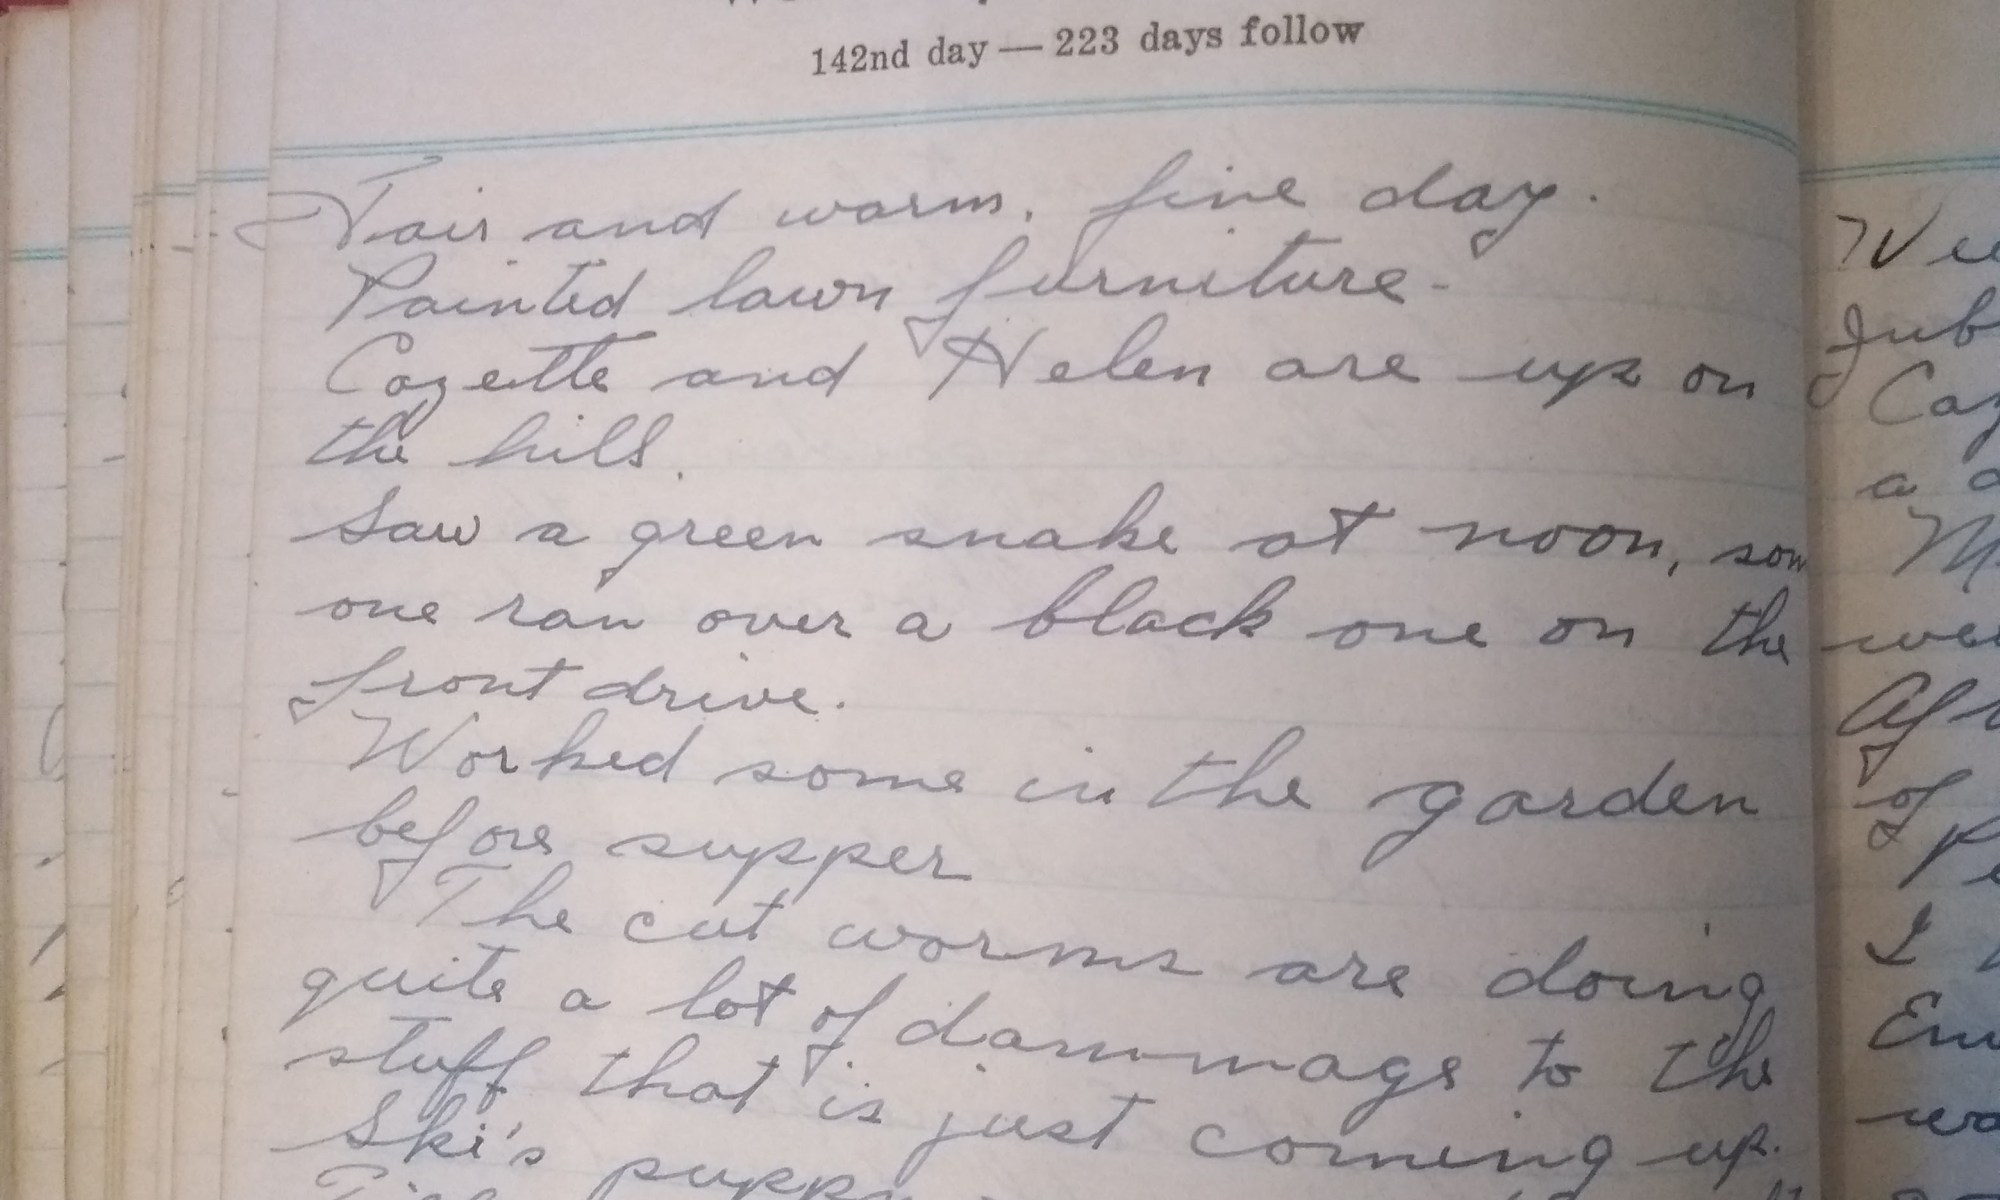 142nd day — 223 days follow
Fair and warm. fine day.
Painted lawn furniture-
Cozette and Helen are up on
the hill.
Saw a green snake at noon, som
one ran over a black one on the
front drive.
Worked some in the garden
before supper
The cut worms are doing
quite a lot of dammage to the
stuff that is just coming up.
Ski's puppy